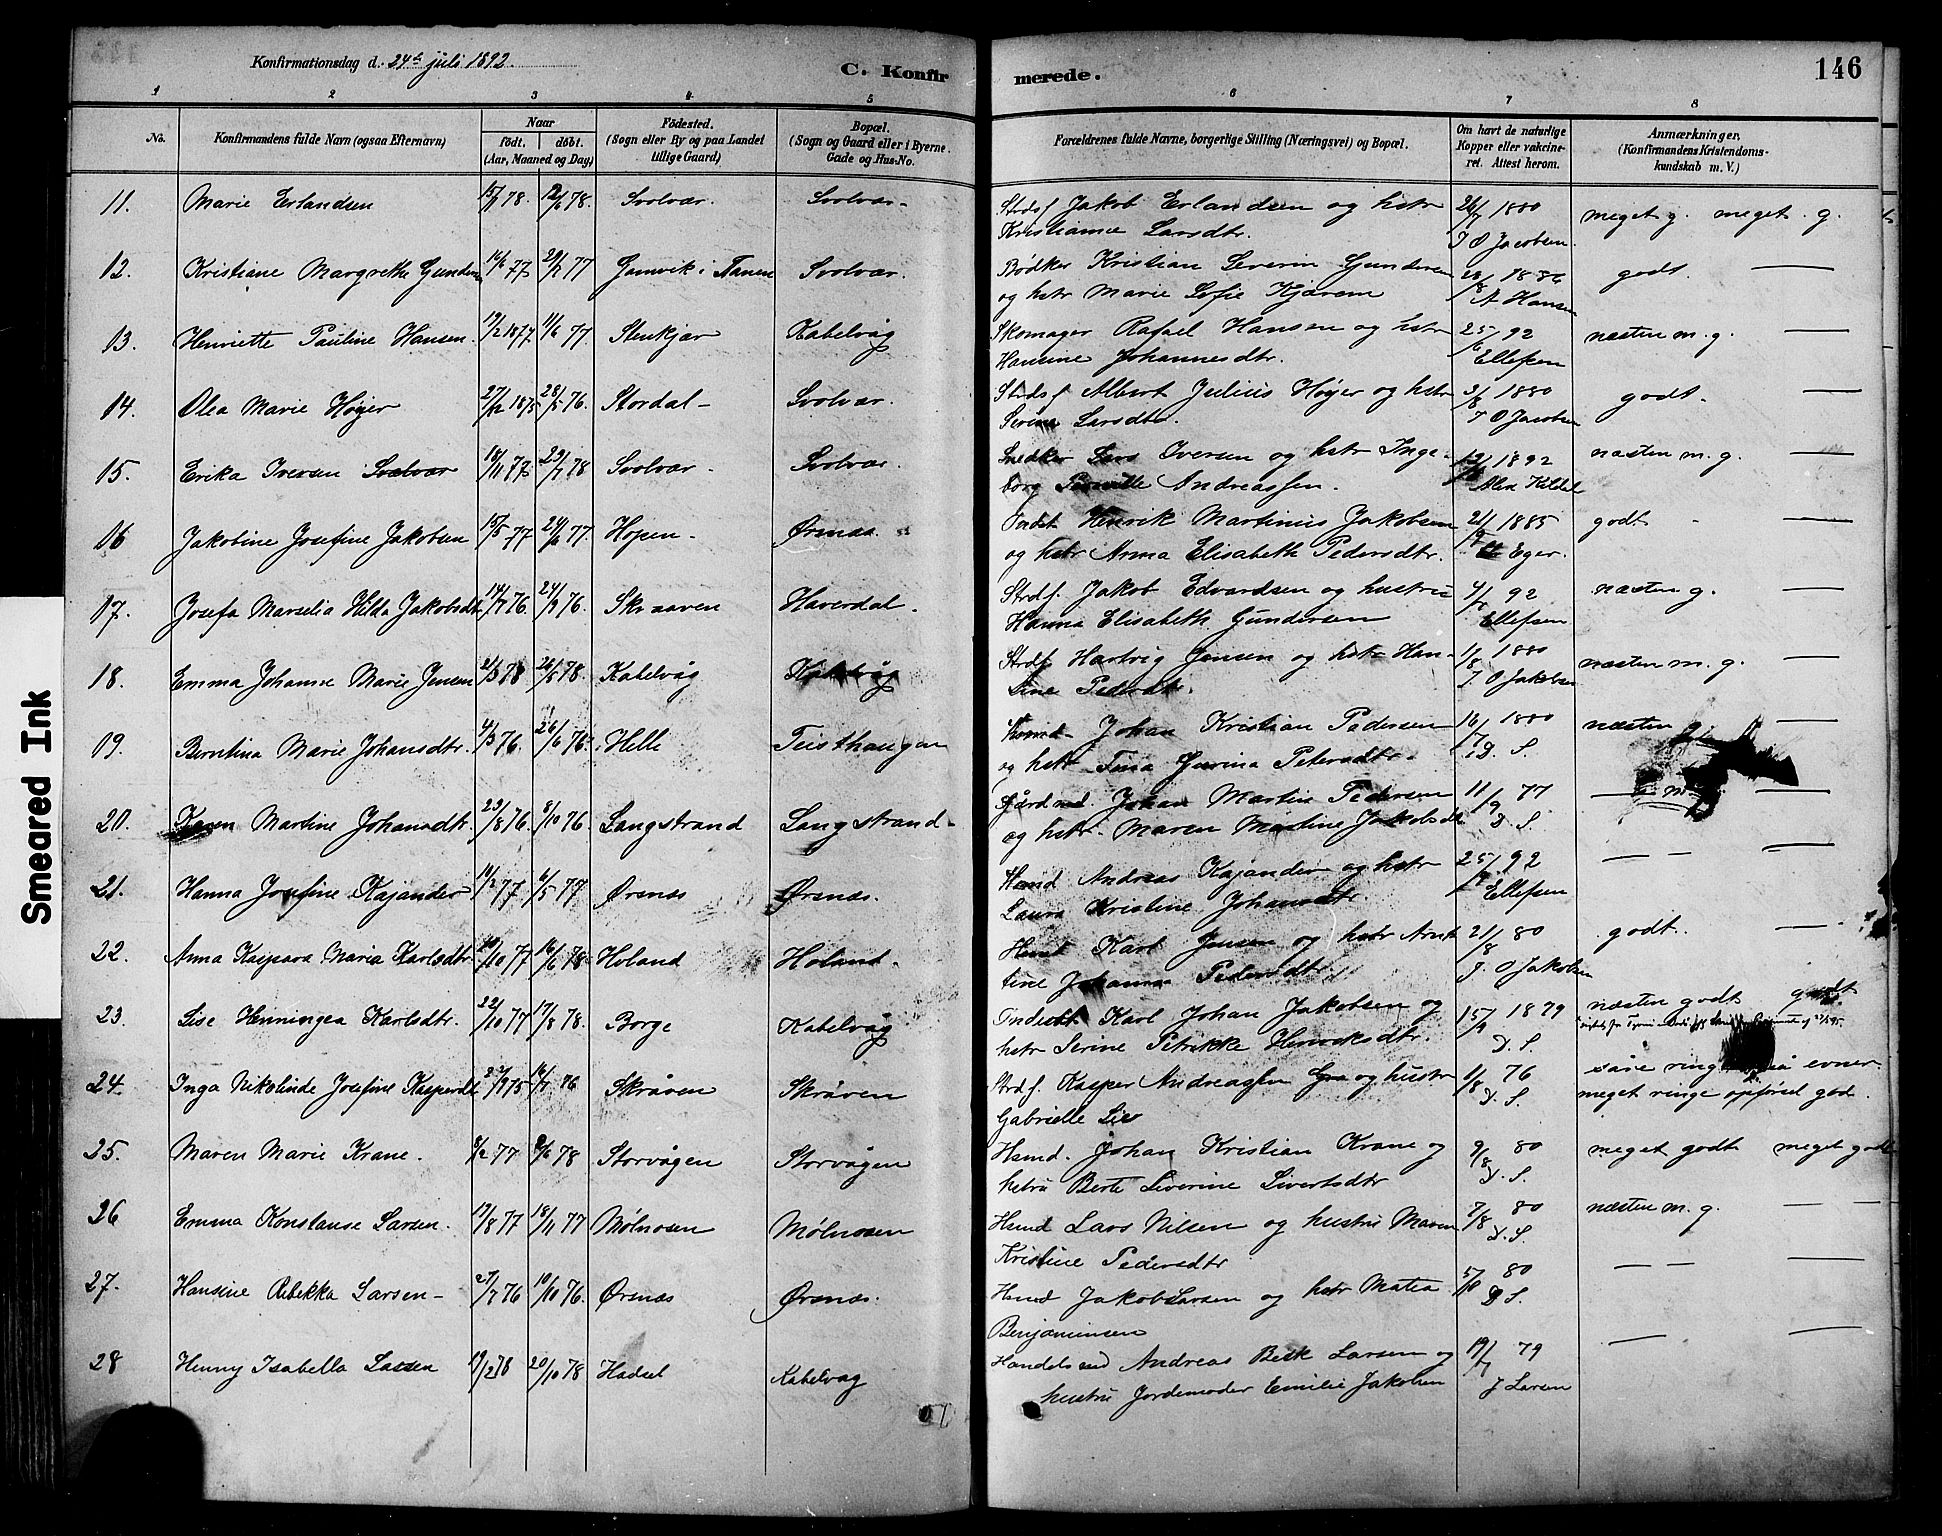 Konfirmationsdag d. 24de juli 1892.
C. Konfirmerede.
146
1 2 3 4 5 6 7 8
No.
Konfirmandens fulde Navn (ogsaa Efternavn)
Naar født. døbt. (Aar, Maaned og Dag)
Fødested. (Sogn eller By og paa Landet tillige Gaard)
Bopæl. (Sogn og Gaard eller i Byerne Gade og Hus-No.
Forældrenes fulde Navne, borgerlige Stilling (Næringsvei) og Bopæl.
Om havt de naturlige Kopper eller vakcineret. Attest herom.
Anmærkninger. (Konfirmandens Kristendomskundskab m. V.)
11. Marie Erlandsen 78. 12/6 78. Svolvær. Svolvær. Strdsf Jakob Erlandsen og hstr 26/7 1880 meget g. meget g.
Kristianne Larsdtr. J O Jacobsen.
12. Kristiane Margrethe Gundersen 77 77 Gamvik i Tanen Svolvær. Bødker Kristian Severin Gundersen 1886 godt. —
og hstr Marie Sofie Kjærem A Hansen
13. Henriette Pauline Hansen. 19/2 1877 11/6 77 Stenkjær Kabelvåg Skomager Rafael Hansen og hstr 25/6 92 næsten m. g. —
Hansine Johannesdtr. Ellefsen
14. Olea Marie Høyer 27/12 1875 28/5 76. Stordal Svolvær. Strdsf Albert Julius Høyer og hstr 2/8 1880 godt. —
Serina Larsdtr. J O Jacobsen
15. Erika Iversen Svolvær 18/11 77 78 Svolvær. Svolvær. Snedker Lars Iversen og hstr Inge- 1892 næsten m. g. —
borg Andreassen.
16 Jakobine Josefine Jakobsen 15/5 77 24/6 77 Hopen. Ørsnæs. Henrik Martinus Jakobsen 1885 godt —
og hstr Anna Elisabeth Pedersdtr. Eger.
17. Josefa Marselia Hilda Jakobsdtr 14/7 76. 24/9 76. Skraaven Haverdal. Strdf. Jakob Edvardsen og hustru 4/7 92 næsten g. —
Hanna Elisabeth Gundersen Ellefsen
18. Emma Johanne Marie Jensen 2/3 78 26/5 78. Kabelvåg Kabelvåg Strdf Hartvig Jensen og hstr Han- 11/8 1880 næsten m. g. —
sine Pedersdtr. J. O Jakobsen
19. Berntina Marie Johansdtr. 4/3 76. 26/6 76. Helle Teisthaugen Johan Kristian Pedersen 16/7 1880 næsten g. —
og hstr Tina Gurina Petersdtr. D. S.
20. Karen Martine Johansdtr. 23/8 76. 8/10 76. Langstrand Langstrand Gårdmd. Johan Martin Pedersen 11/9 77 —
og hstr. Maren Martine Jakobsdtr D. S.
21. Hanna Josefine Kajander 10/2 77 6/5 77 Ørsnæs Ørsnæs. Hsmd Andreas Kajander og hstr 25/6 92 — — —
Laura Kristine Johansdtr. Ellefsen
22. Anna Kaspara Maria Karlsdtr. 19/10 77 16/6 78. Holand Holand. Hsmd Karl Jensen og hstr Arnt- 21/8 80 godt. —
tine Johanna Pedersdtr. J. O Jakobsen
23. Lise Henningea Karlsdtr. 22/10 77 17/8 78. Borge Kabelvåg Inderst Karl Johan Jakobsen og 15/9 1879 næsten godt godt.
hstr Serine Petrikke Henriksdtr. D. S.
24. Inga Nikolinde Josefine Kaspersdtr 75 76 Skråven Skråven Strdf. Kasper Andreassen og hustr 1/8 76 såre ringe evner
Gabrielle Lie D. S. meget ringe opførsel god.
25. Maren Marie Krane. 8/2 77 9/6 78 Storvågen Storvågen Hsmd. Johan Kristian Krane og 9/8 80 meget godt meget godt
hstru Berte Severine Sivertsdtr D. S.
26 Emma Konstanse Larsen. 17/8 77 18/11 77 Mølnosen Mølnosen Hsmd Lars Nilsen og hustru Maren 7/8 80 næsten m. g. —
Kristine Pedersdtr D. S.
27. Hansine Rebekka Larsen 27/7 76 10/10 76. Ørsnæs Ørsnæs. Hsmd Jakob Larsen og hstr Matea 5/8 80 — — —
Benjaminsen D S.
28 Henny Isabella Larsen 19/12 78 20/10 78 Hadsel Kabelvag Handelsmd Andreas Beck Larsen og 19/7 79 — —
hustru Jordemoder Emilie Jakobsen J Larsen
Smeared Ink